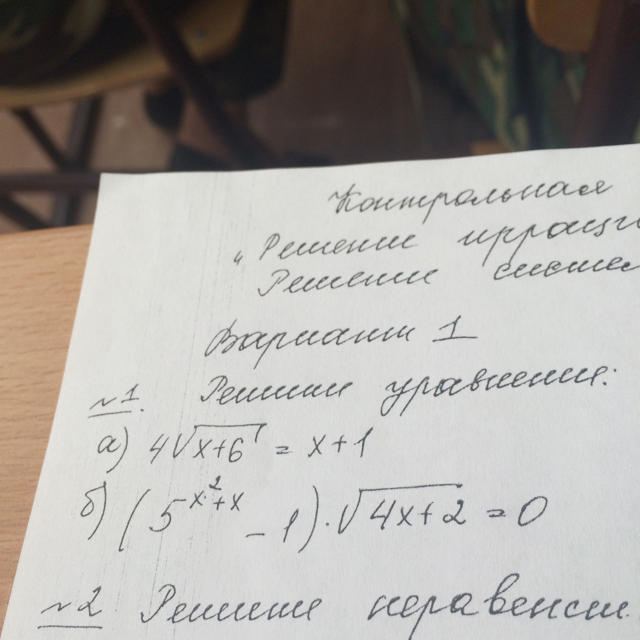 Контрольная
"Решение иррац
Решение систем
Вариант 1
№1. Решить уравнения:
а) 4√(x+6) = x+1
б) (5^(x²+x) - 1)·√(4x+2) = 0
№2 Решить неравенст